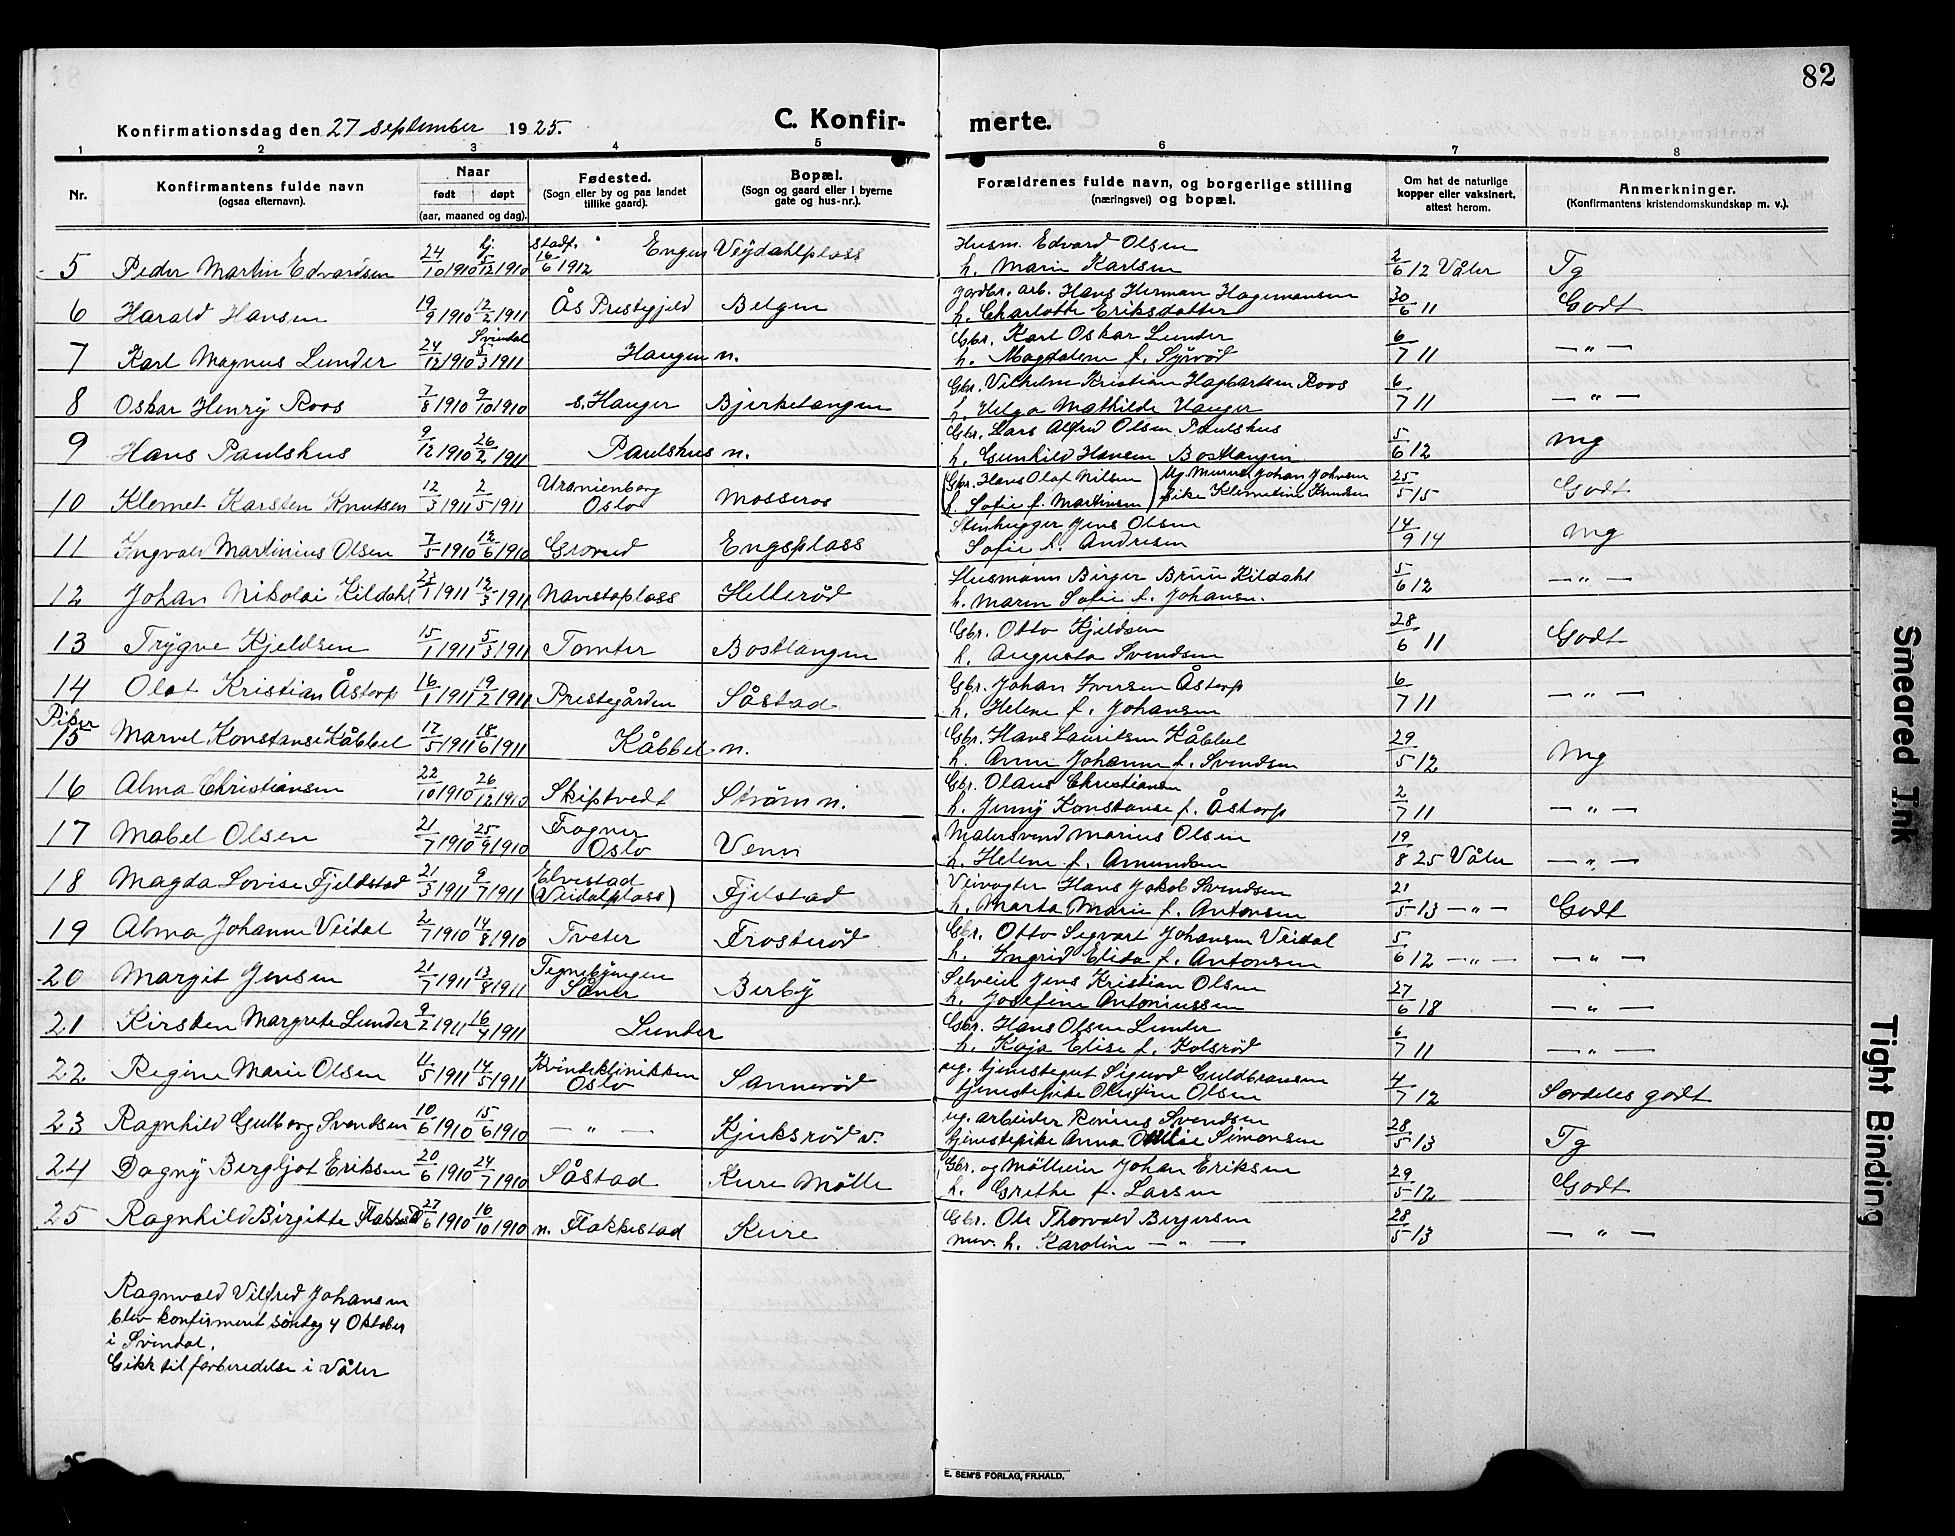 82
Konfirmationsdag den 27 september 1925. C. Konfir- merte.
1 2 3 4 5 6 7 8
Nr. Konfirmantens fulde navn (ogsaa efternavn). Naar født døpt (aar, maaned og dag). Fødested. (Sogn eller by og paa landet tillike gaard). Bopæl. (Sogn og gaard eller i byerne gate og hus-nr.). Forældrenes fulde navn, og borgerlige stilling (næringsvei) og bopæl. Om hat de naturlige kopper eller vaksinert, attest herom. Anmerkninger. (Konfirmantens kristendomskundskap m. v.).
5 Peder Martin Edvardsen 24/10 1910 hj. 5/12 1910 stadf. 16/6 1912 Engen Veydahlplass Husm. Edvard Olsen
h. Marie Karlsen 2/6 12 Våler Tg
6 Harald Hansen 19/9 1910 12/2 1911 Ås Prestegjeld Belgen Jordbr. arb. Hans Herman Hagemansen
h. Charlotte Eriksdatter 30/6 11 Godt
7 Karl Magnus Lunder 24/12 1910 Svindal 5/3 1911 Haugen n. Gbr. Karl Oskar Lunder
h. Magdalene f. Syverød 6/7 11 — " —
8 Oskar Henry Roos 7/8 1910 9/10 1910 s. Hauger Bjerketangen Gbr. Vilhelm Kristian Hagbartsen Roos
h. Helga Mathilde Hauger 6/7 11 — " —
9 Hans Paulshus 9/12 1910 26/2 1911 Paulshus n. Gbr. Lars Alfred Olsen Paulshus
h. Gunhild Hansen Bostlangen 5/6 12 mg
10 Klemet Karsten Knutsen 12/3 1911 2/5 1911 Uranienborg Oslo Mosseros (Gbr. Hans Olaf Nilsen ) Ug. Murer Johan Johnsen
(h. Sofie f. Martinsen ) Pike Klemetine Knudsen 25/5 15 Godt
11 Ingvald Martinius Olsen 7/5 1910 12/6 1910 Grorud Engsplass Stenhugger Jens Olsen
Sofie f. Andresen 14/9 14 mg
12 Johan Nikolai Kildahl 23/1 1911 12/3 1911 Navestaplass Hellerød Husmann Birger Bruu Kildahl
h. Maren Sofie f. Johansen. 5/6 12 — " —
13 Trygve Kjeldsen 15/1 1911 5/3 1911 Tomter Bostlangen Gbr. Otto Kjeldsen
h. Augusta Svendsen 28/6 11 Godt
14 Olaf Kristian Åstorp 16/1 1911 19/2 1911 Prestegården Såstad Gbr. Johan Iversen Åstorp
h. Helene f. Johansen 6/7 11 — " —
Piker
15 Marvel Konstanse Kåbbel 17/5 1911 18/6 1911 Kåbbel n. Gbr. Hans Lauritsen Kåbbel
h. Anne Johanne f. Svendsen 29/5 12 mg
16 Alma Christiansen 22/10 1910 26/12 1910 Skiptvedt Strøm n. Gbr. Olaus Christiansen
h. Jenny Konstanse f. Åstorp 2/7 11 — " —
17 Mabel Olsen 21/7 1910 25/9 1910 Frogner Oslo Venn Malersvend Marius Olsen
h. Helene f. Amundsen 19/8 25 Våler — " —
18 Magda Lovise Fjeldstad 21/3 1911 9/7 1911 Elvestad (Veidalplass) Fjelstad Veivogter Hans Jakob Svendsen
h. Marta Marie f. Antonsen 21/5 13 — " — Godt
19 Alma Johanne Veidal 2/7 1910 14/8 1910 Tveter Frosterød Gbr. Otto Segvart Johansen Veidal
h. Ingrid Elida f. Antonsen 5/6 12 — " — — " —
20 Margit Jensen 21/7 1911 13/8 1911 Tegnebyengen Såner Berby Selveier Jens Kristian Olsen
h. Josefine Antoniussen 27/6 18 — " —
21 Kirsten Margrete Lunder 9/2 1911 16/4 1911 Lunder Gbr. Hans Olsen Lunder
h. Kaja Elise f. Kolsrød 6/7 11 — " —
22 Regine Marie Olsen 11/5 1911 14/5 1911 Kvindeklinikken Oslo Sannerød ug. tjenestegut Sigurd Guldbransen
tjenestepike Olefine Olsen 4/7 12 Særdeles godt
23 Ragnhild Gulborg Svendsen 10/6 1910 15/6 1910 — " — Kjuksrød v. ug. arbeider Rinius Svendsen
tjenestepike Anna Otilie Simonsen 28/5 13 Tg
24 Dagny Bergljot Eriksen 20/6 1910 24/7 1910 Såstad Kure Mølle Gbr. og Mølleier Johan Eriksen
h. Grethe f. Larsen 29/5 12 Godt
25 Ragnhild Birgitte Flakkestad 27/6 1910 16/10 1910 n. Flakkestad Kure Gbr. Ole Thorvald Bergersen
h. Karoline — " — 28/5 13 — " —
Ragnvald Vilfred Johansen
blev konfirmert søndag 4 Oktober
i Svindal.
Gikk til forberedelse i Våler
E. SEM'S FORLAG, FR.HALD.
Smeared Ink
Tight Binding